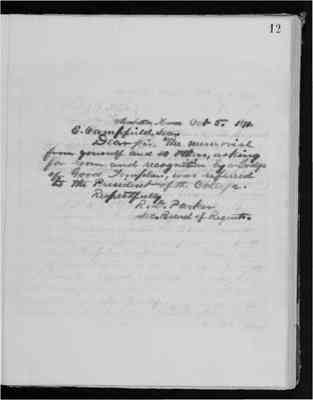 12
Manhattan, Kansas Oct 5. 1871
C. Campfield, Dear
Dear Sir. The memorial
from yourself and 10 others, asking
for room and recognition by a Lodge
of Good Templars, was referred
to the President of the College.
Respectfully
R. D. Parker
Sec. Board of Regents.